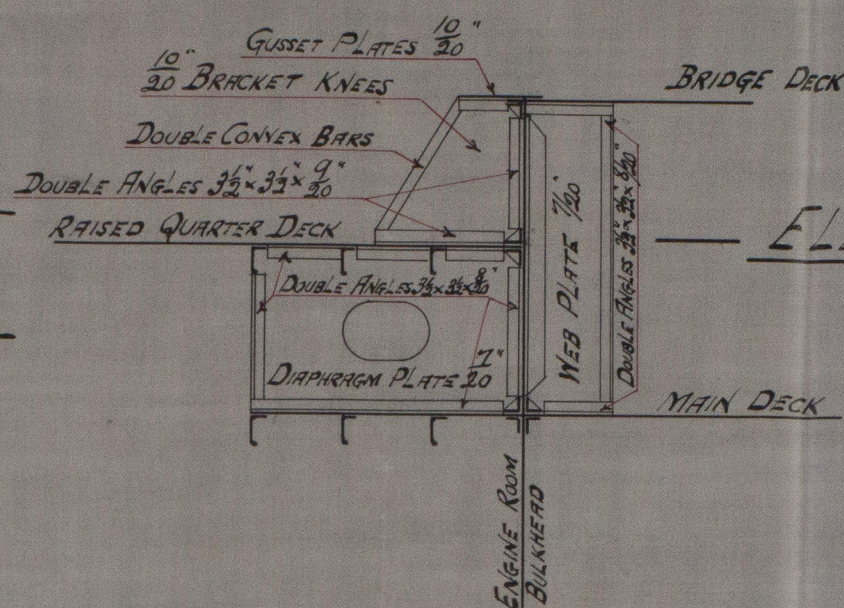 GUSSET PLATES 10/20"
10/20" BRACKET KNEES
BRIDGE DECK
DOUBLE CONVEX BARS
DOUBLE ANGLES 3½" × 3½" × 9/20"
RAISED QUARTER DECK
DOUBLE ANGLES 3½ × 3½ × 8/20"
DIAPHRAGM PLATE 7/20"
WEB PLATE 7/20"
DOUBLE ANGLES 3½" × 3½" × 8/20"
MAIN DECK
ENGINE ROOM
BULKHEAD